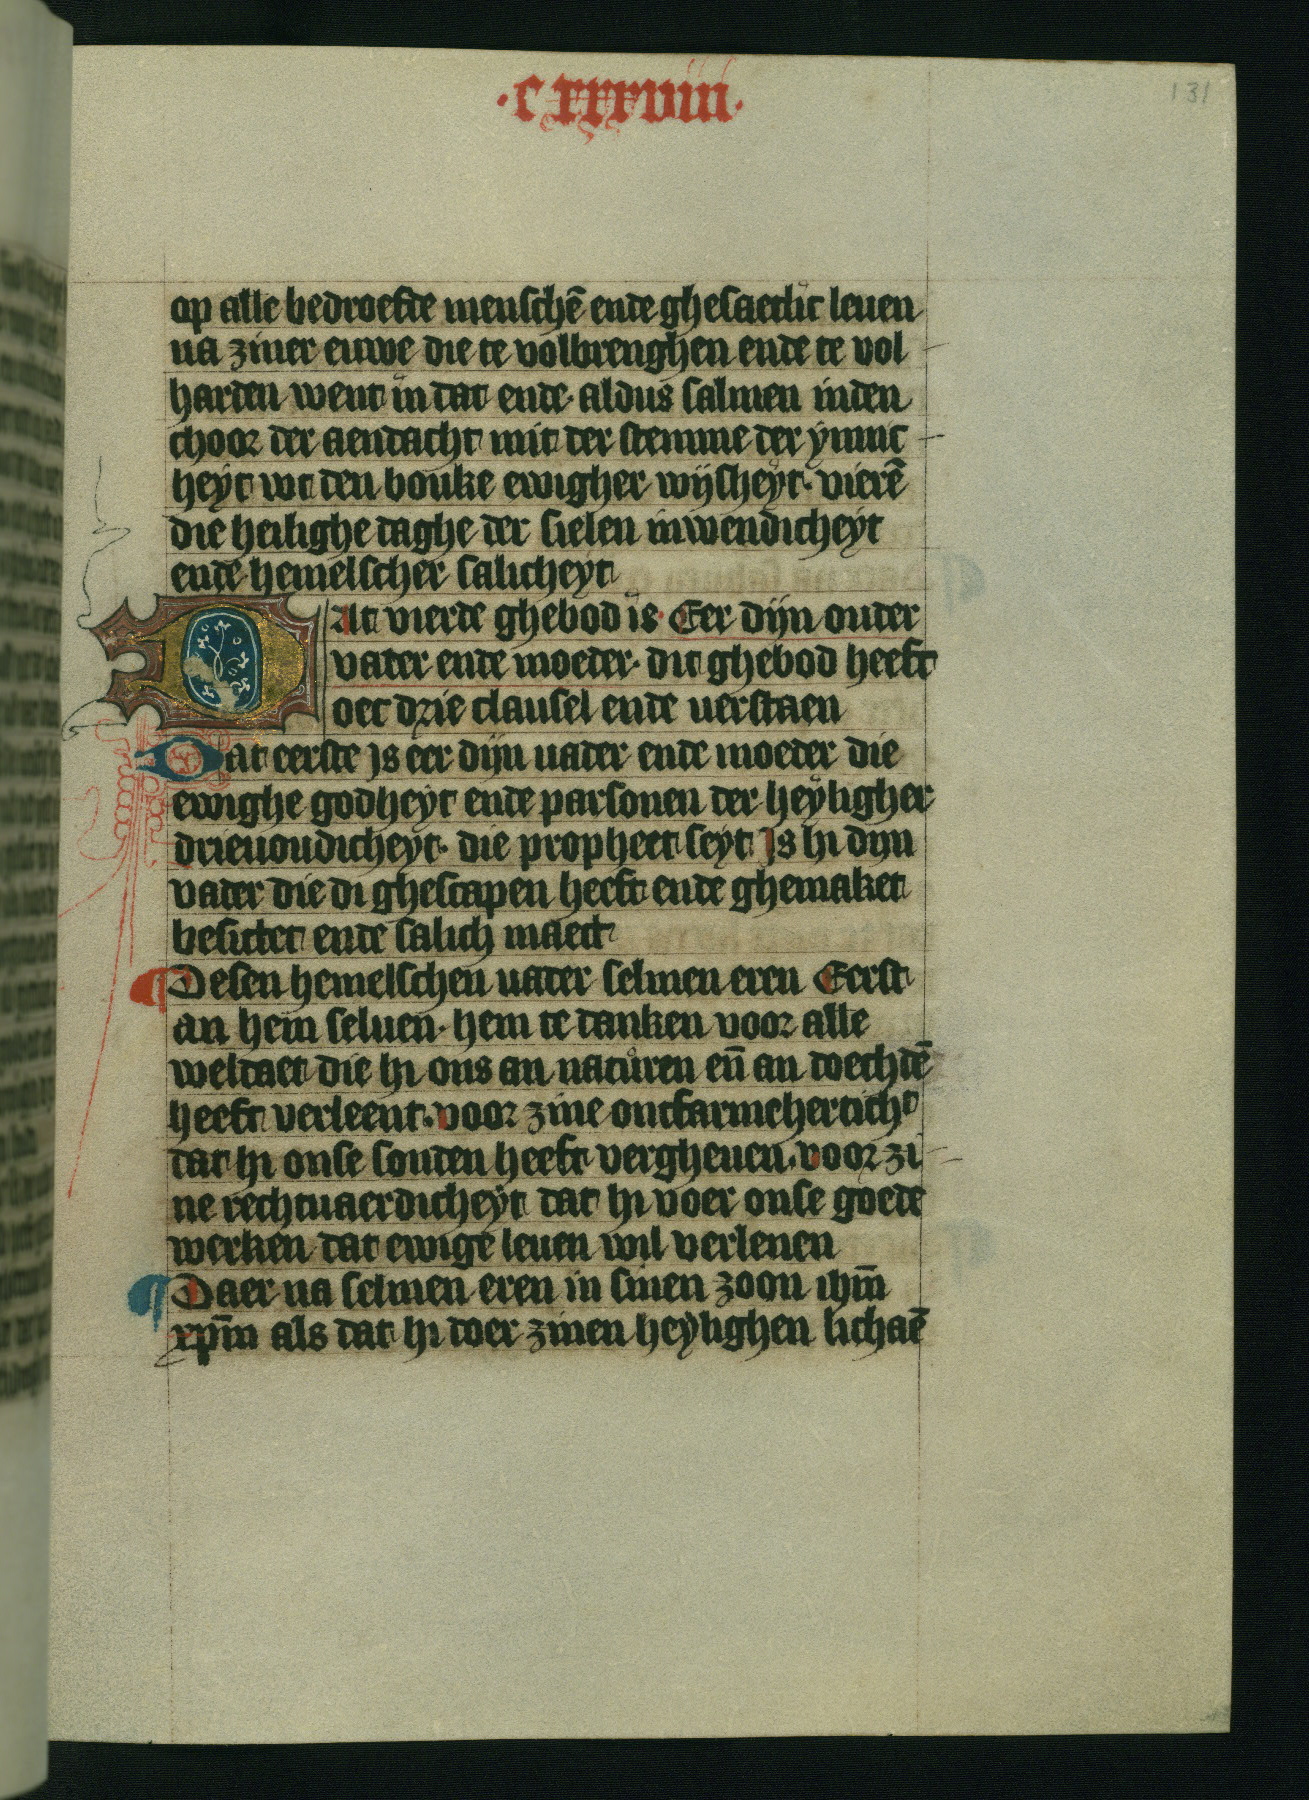 ·cxxxviii·
131
op alle bedroefde menschē ende ghesaedic leuen
na ziner euwe die te volbrenghen ende te vol
harden went in dat ende· aldus salmen inden
choor der aendacht mit der stemme der ynnic
heyt wt den bouke ewigher wijsheyt· vierē
die heilighe daghe der sielen inwendicheyt
ende hemelscher salicheyt
Dat vierde ghebod is· Eer dijn ouder
vader ende moeder· dit ghebod heeft
oec drie clausel ende verstaen
Dat eerste is eer dijn vader ende moeder die
ewighe godheyt ende parsonen der heyligher
drieuoudicheyt· die propheet seyt Is hi dijn
vader die di ghescapen heeft ende ghemaket
besittet ende salich maect
¶ Desen hemelschen uader selmen eren Eerst
an hem seluen· hem te danken voor alle
weldaet die hi ons an naturen en̄ an doechdē
heeft verleent· voor zine ontfarmchertich
dat hi onse sonden heeft vergheuen· voor zi
ne rechtuaerdicheyt dat hi voer onse goede
werken dat ewige leuen wil verlenen
¶ Daer na selmen eren in sinen zoon ihm̄
xpm̄ als dat hi doer zinen heylighen lichaē